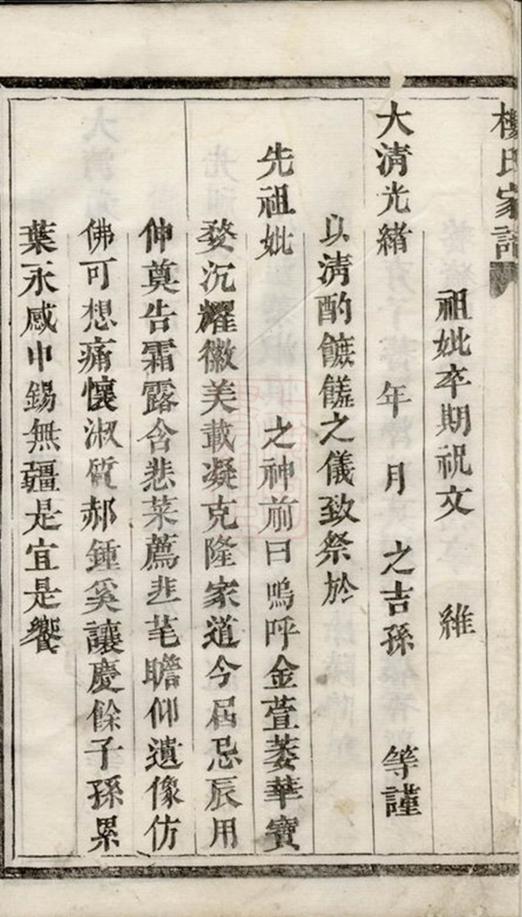 樓氏家譜
祖妣卒期祝文 維
大清光緒 年 月 之吉孫 等謹
以清酌饌饈之儀致祭於
先祖妣 之神前曰嗚呼金萱萎華寶
婺沉耀徽美載凝克隆家道今屆忌辰用
伸奠告霜露含悲菜薦韭芼瞻仰遺像仿
佛可想痛懷淑質郝鍾奚讓慶餘子孫累
葉永感申錫無疆是宜是饗